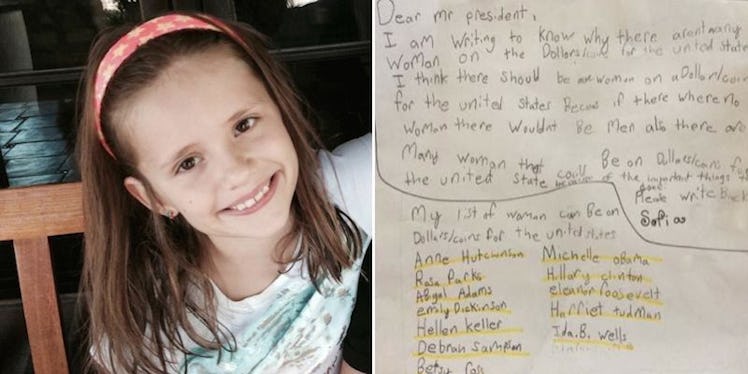 Dear mr president,
I am writing to know why there arent many
Woman on the Dollars/coins for the united states
I think there should be more woman on a Dollar/coin
for the united states Becaus if there where no
Woman there Wouldnt Be Men also there are
Many woman that could Be on Dollars/coins for
the united state because of the important things
Please write Back
Sofia
My list of woman can Be on
Dollars/coins for the united states
Anne Hutchinson
Rosa Parks
Abigal Adams
emily Dickinson
Hellen keller
Debrah sampson
Betsy Ross
Michelle obama
Hillary clinton
eleanor roosevelt
Harriet tudman
Ida.B. wells